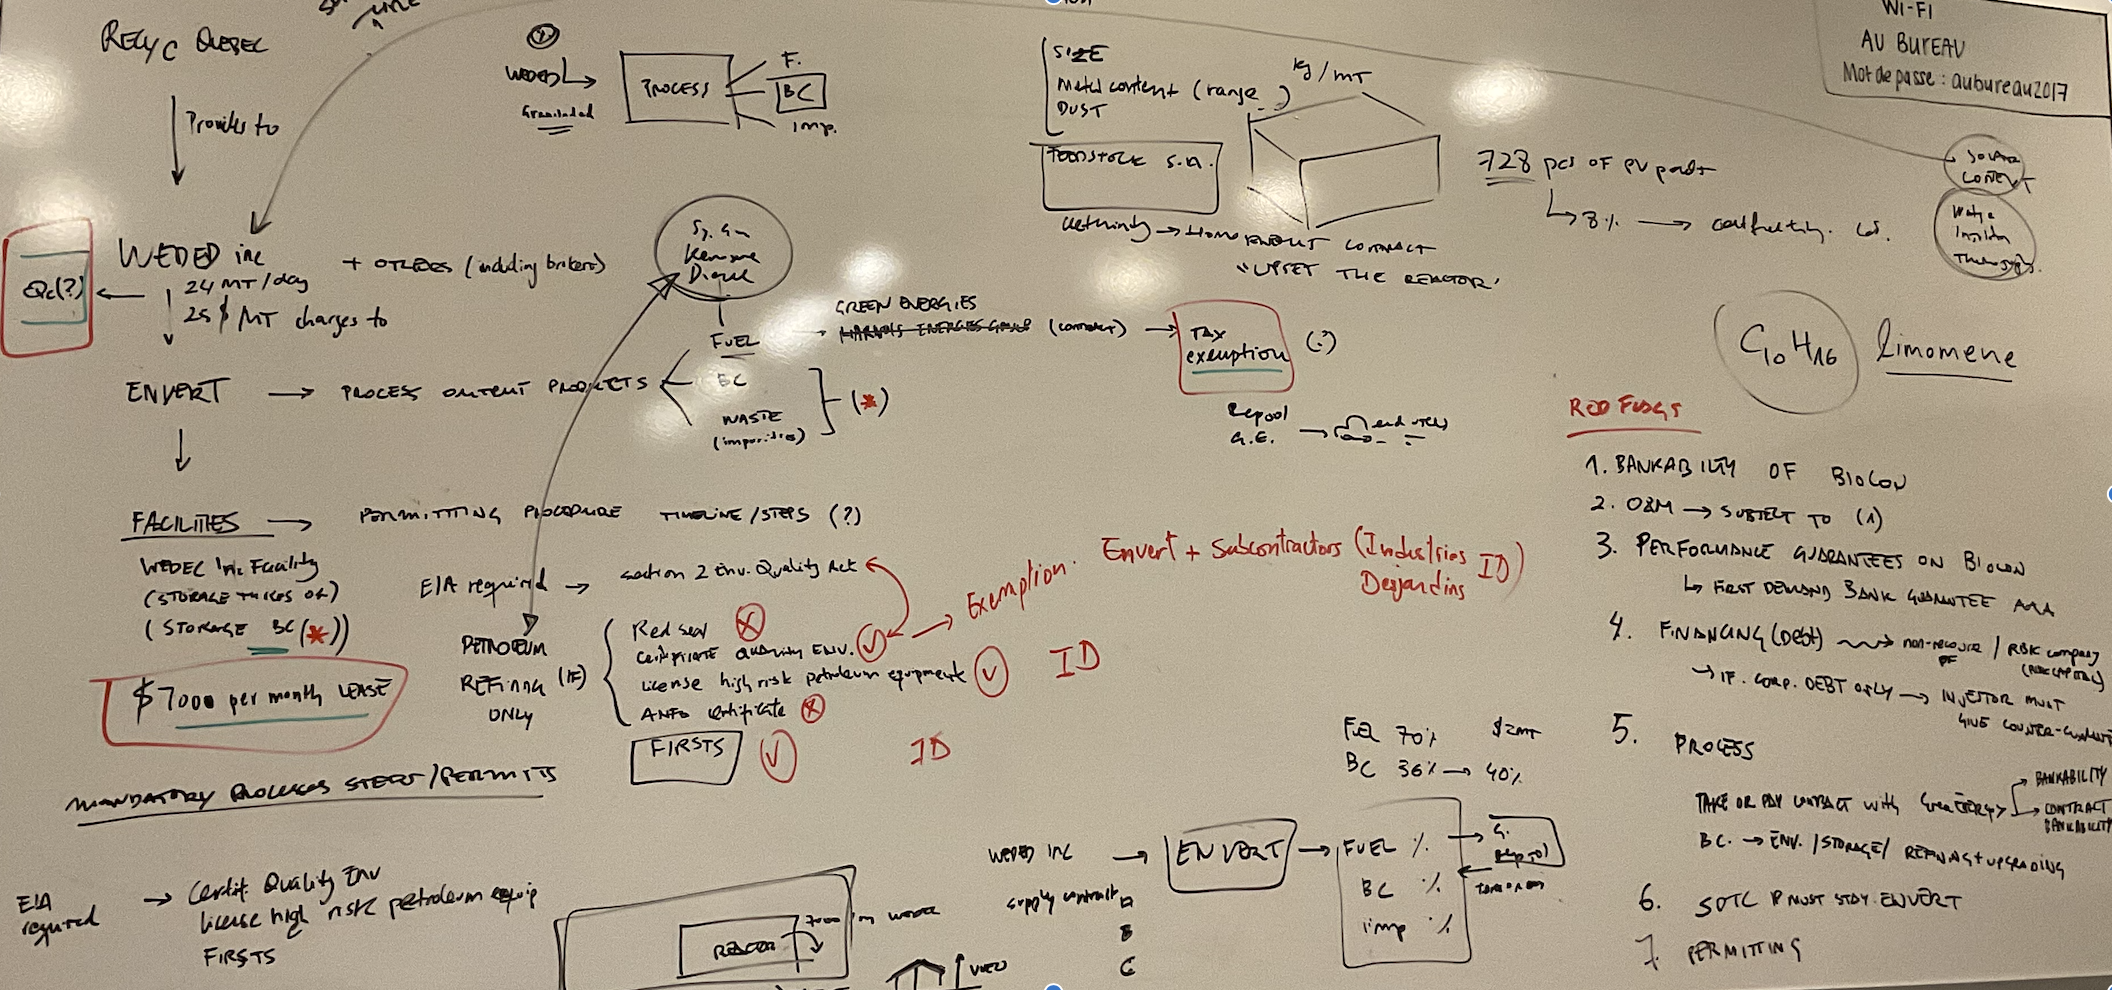 RECYC QUEBEC
Provides to
WEDED inc
+ OTHERS (including brokers)
24 MT/day
25 $/MT charges to
Qc(?)
ENVERT → PROCESS OUTPUT PRODUCTS
FUEL
BC
WASTE
(impurities)
(*)
Kerosene
GREEN ENERGIES
(contract)
TAX
exemption
(?)
Repsol
G.E.
end users
FACILITIES → PERMITTING PROCEDURE TIMELINE/STEPS (?)
WEDED Inc. Facility
(STORAGE
(STORAGE BC (*))
$7000 per month LEASE
EIA required → section 2 Env. Quality Act
PETROLEUM
REFINING (IF)
ONLY
Red seal
Certificate QUALITY ENV.
License high risk petroleum equipment
certificate
FIRSTS
ID
ID
Exemption. Envert + Subcontractors (Industries
Desjardins
ID)
MANDATORY PROCESS STEPS/PERMITS
EIA
required
→ Certif. Quality Env
license high risk petroleum equip
FIRSTS
1
WEDED
Granulated
PROCESS
F.
BC
imp.
SIZE
Metal content (range )
DUST
kg/MT
FEEDSTOCK S.A.
→ HOMOGENEOUS CONTRACT
"UPSET THE REACTOR"
728 pcs of
8% →
WI-FI
AU BUREAU
Mot de passe : aubureau2017
CONTENT
C10H16
limomene
RED FLAGS
1. BANKABILITY OF BIOCON
2. O&M → SUBJECT TO (1)
3. PERFORMANCE GUARANTEES ON BIOCON
↳ FIRST DEMAND BANK GUARANTEE AAA
4. FINANCING (Debt) → non-recourse / RISK company
PF
(RISK CAPITAL)
→ IF. CORP. DEBT ONLY → INVESTOR MUST
GIVE COUNTER-
5. PROCESS
TAKE OR PAY CONTRACT with
BANKABILITY
CONTRACT
BANKABILITY
BC. → ENV. / STORAGE / REFINING + UPGRADING
6. IP MUST STAY ENVERT
7. PERMITTING
FUEL 70%
BC 36% → 40%
WEDED INC → ENVERT → FUEL %
BC %
imp %
G.
Repsol
supply contract A
B
C
REACTOR